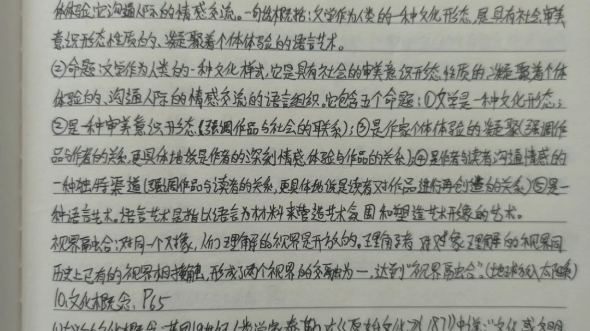 体体验,它沟通人际的情感交流。一句话概括:文学作为人类的一种文化形态,是具有社会审美
意识形态性质的、凝聚着个体体验的语言艺术。
②命题:文学作为人类的一种文化样式,它是具有社会的审美意识形态性质的、凝聚着个体
体验的、沟通人际的情感交流的语言组织。它包含五个命题:①文学是一种文化形态;
②是一种审美意识形态(强调作品与社会的联系);③是作家个体体验的凝聚(强调作
品与作者的关系,更具体地说是作者的深刻情感体验与作品的关系);④是作者与读者沟通情感的
一种独特渠道(强调作品与读者的关系,更具体地说是读者对作品进行再创造的关系)⑤是一
种语言艺术。语言艺术是指以语言为材料来营造艺术氛围和塑造艺术形象的艺术。
视界融合:对同一个对象,人们理解的视界是开放的。理解者对对象理解的视界同
历史上已有的视界相接触,形成了两个视界的交融为一,达到“视界融合”。
10.文化概念,P65